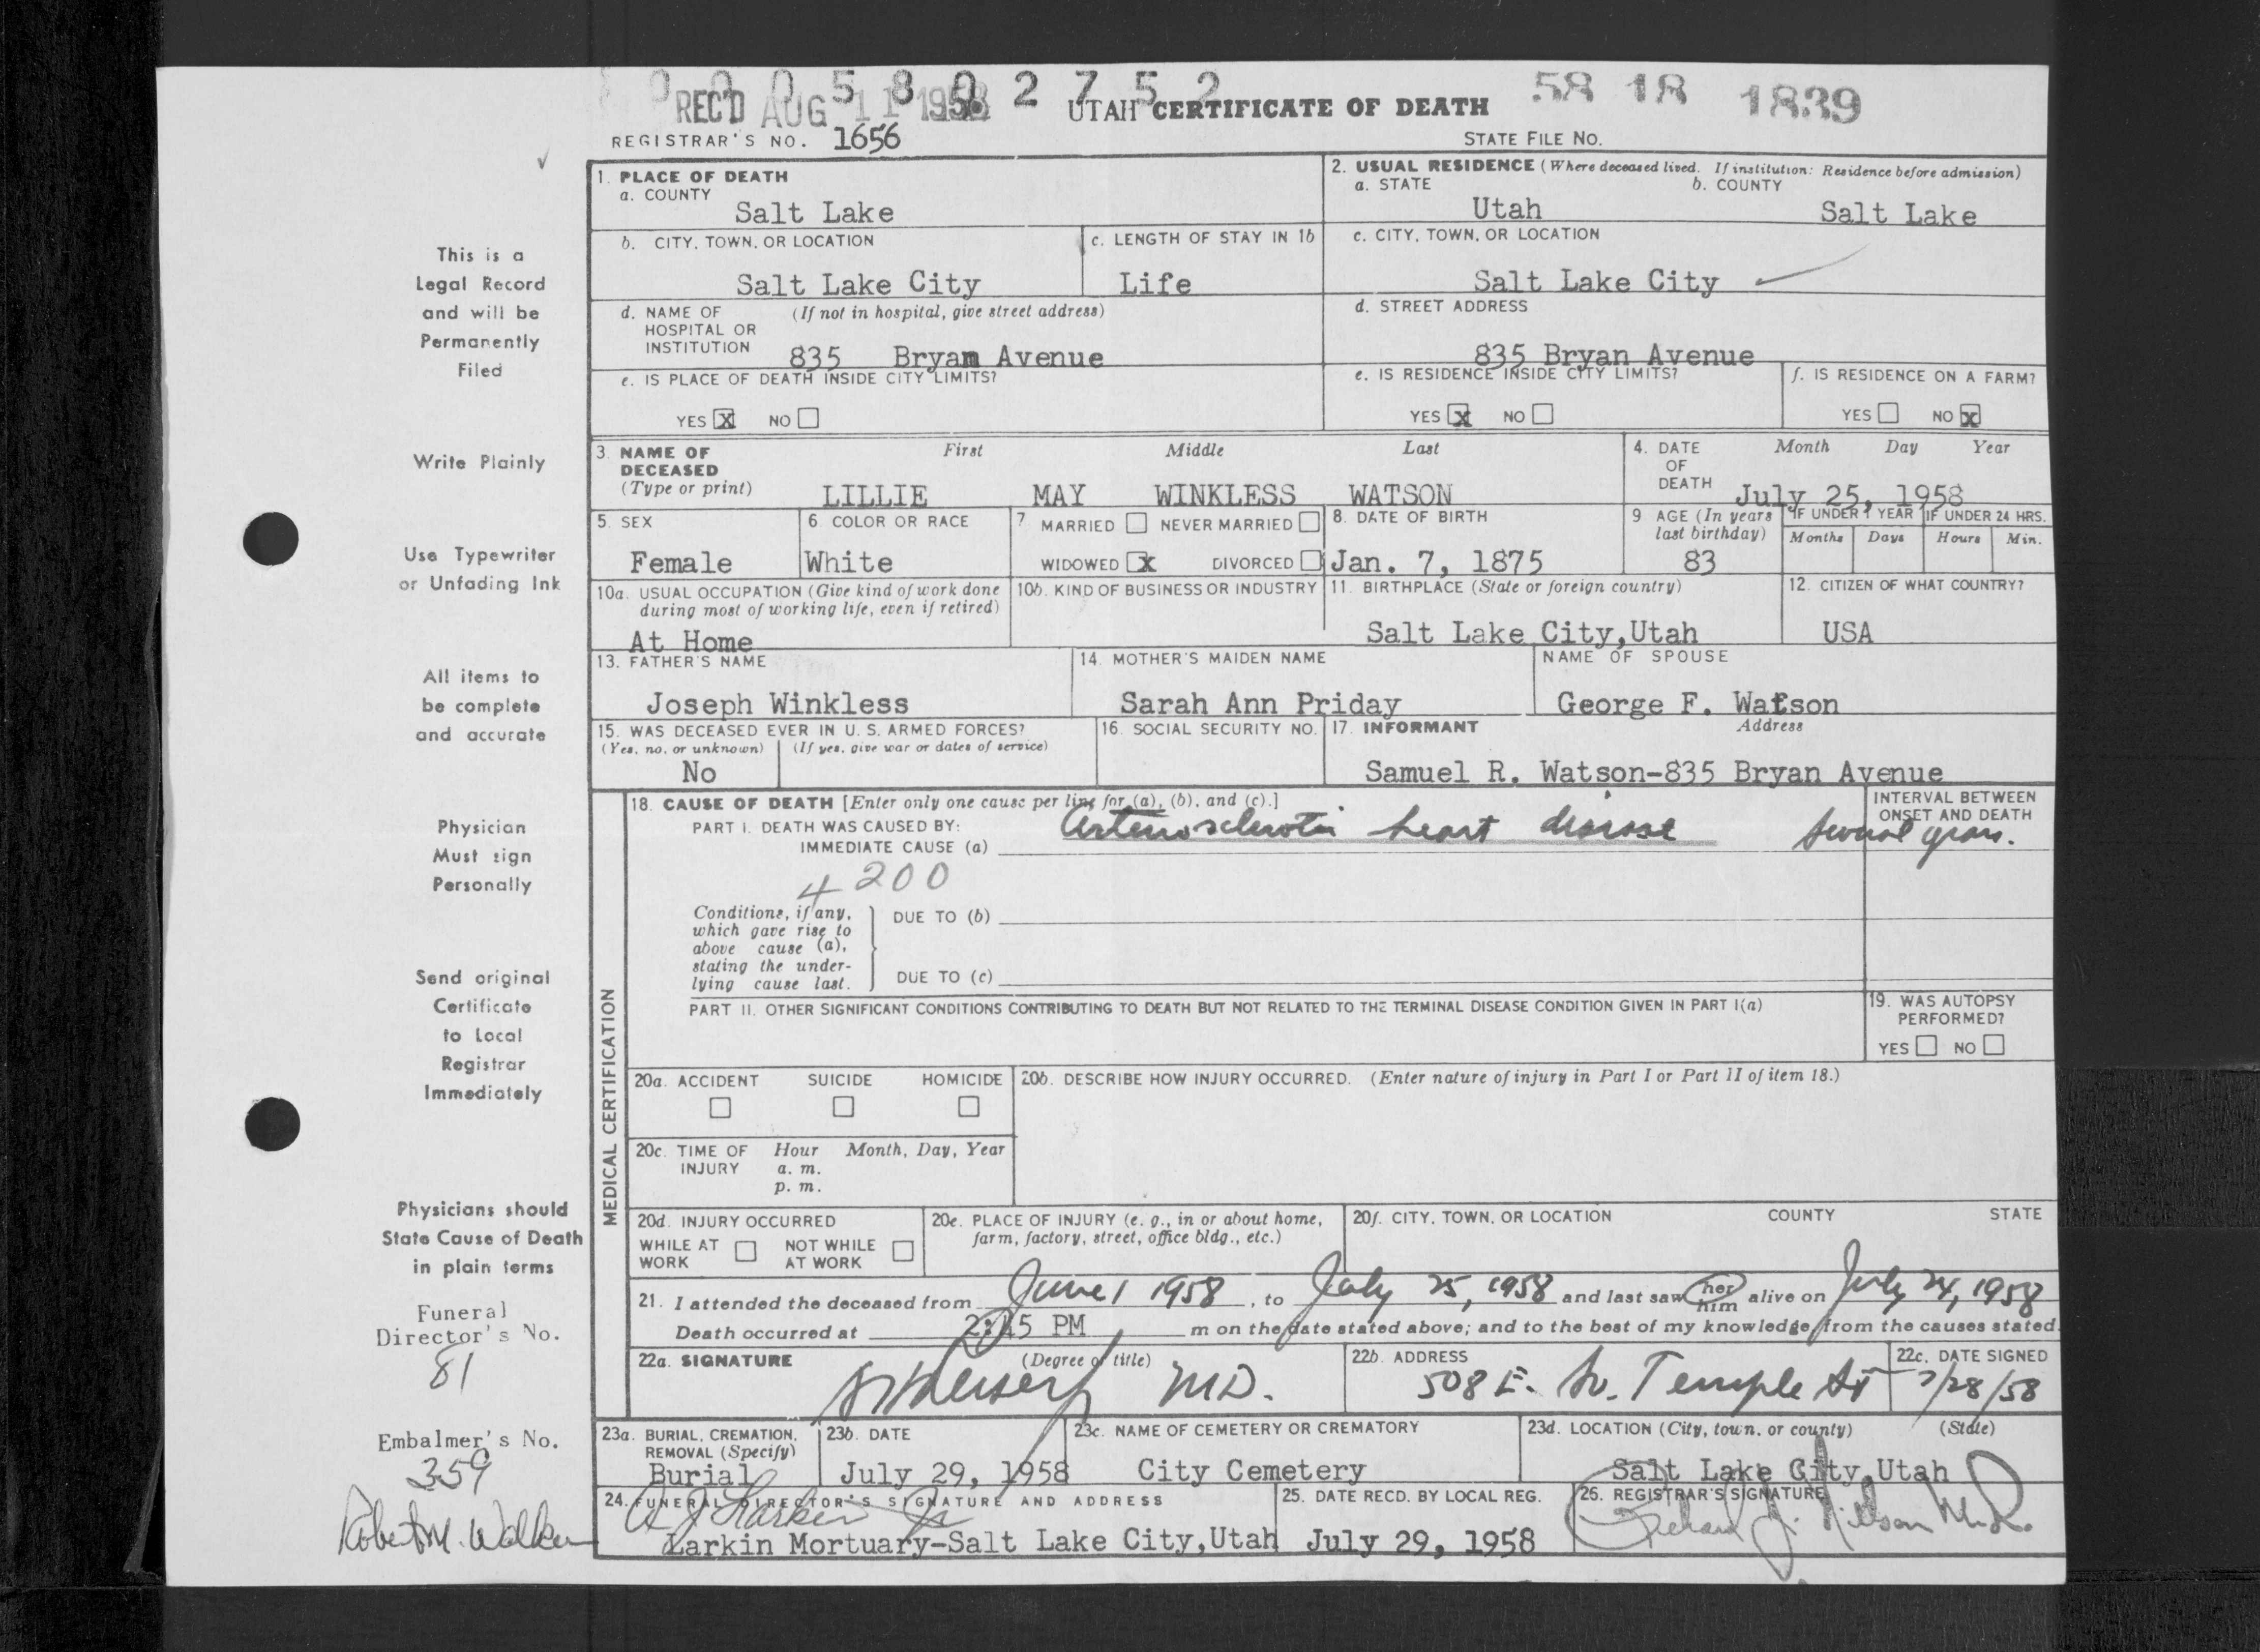 0 0 0 5 8 0 2 7 5 2
REC'D AUG 11 1958 UTAH CERTIFICATE OF DEATH 58 18 1839
REGISTRAR'S NO. 1656 STATE FILE NO.
1. PLACE OF DEATH
a. COUNTY
Salt Lake
2. USUAL RESIDENCE (Where deceased lived. If institution: Residence before admission)
a. STATE b. COUNTY
Utah Salt Lake
b. CITY, TOWN, OR LOCATION
Salt Lake City
c. LENGTH OF STAY IN 1b
Life
c. CITY, TOWN, OR LOCATION
Salt Lake City
d. NAME OF (If not in hospital, give street address)
HOSPITAL OR
INSTITUTION 835 Bryan Avenue
d. STREET ADDRESS
835 Bryan Avenue
e. IS PLACE OF DEATH INSIDE CITY LIMITS?
YES X NO
e. IS RESIDENCE INSIDE CITY LIMITS?
YES X NO
f. IS RESIDENCE ON A FARM?
YES NO X
3. NAME OF First Middle Last
DECEASED
(Type or print) LILLIE MAY WINKLESS WATSON
4. DATE Month Day Year
OF
DEATH July 25, 1958
5. SEX
Female
6. COLOR OR RACE
White
7 MARRIED NEVER MARRIED
WIDOWED X DIVORCED
8. DATE OF BIRTH
Jan. 7, 1875
9 AGE (In years
last birthday)
83
IF UNDER 1 YEAR IF UNDER 24 HRS.
Months Days Hours Min.
10a. USUAL OCCUPATION (Give kind of work done
during most of working life, even if retired)
At Home
10b. KIND OF BUSINESS OR INDUSTRY
11. BIRTHPLACE (State or foreign country)
Salt Lake City,Utah
12. CITIZEN OF WHAT COUNTRY?
USA
13. FATHER'S NAME
Joseph Winkless
14. MOTHER'S MAIDEN NAME
Sarah Ann Priday
NAME OF SPOUSE
George F. Watson
15. WAS DECEASED EVER IN U. S. ARMED FORCES?
(Yes, no, or unknown) (If yes, give war or dates of service)
No
16. SOCIAL SECURITY NO.
17. INFORMANT Address
Samuel R. Watson-835 Bryan Avenue
MEDICAL CERTIFICATION
18. CAUSE OF DEATH [Enter only one cause per line for (a), (b), and (c).]
PART I. DEATH WAS CAUSED BY:
IMMEDIATE CAUSE (a) Arteriosclerotic heart disease
INTERVAL BETWEEN
ONSET AND DEATH
several years.
4200
Conditions, if any,
which gave rise to
above cause (a),
stating the under-
lying cause last.
DUE TO (b)
DUE TO (c)
PART II. OTHER SIGNIFICANT CONDITIONS CONTRIBUTING TO DEATH BUT NOT RELATED TO THE TERMINAL DISEASE CONDITION GIVEN IN PART I(a)
19. WAS AUTOPSY
PERFORMED?
YES NO
20a. ACCIDENT SUICIDE HOMICIDE
20b. DESCRIBE HOW INJURY OCCURRED. (Enter nature of injury in Part I or Part II of item 18.)
20c. TIME OF Hour Month, Day, Year
INJURY a. m.
p. m.
20d. INJURY OCCURRED
WHILE AT NOT WHILE
WORK AT WORK
20e. PLACE OF INJURY (e. g., in or about home,
farm, factory, street, office bldg., etc.)
20f. CITY, TOWN, OR LOCATION COUNTY STATE
21. I attended the deceased from June 1 1958, to July 25, 1958 and last saw her him alive on July 24, 1958
Death occurred at 2:45 PM m on the date stated above; and to the best of my knowledge from the causes stated.
22a. SIGNATURE (Degree or title)
M.D.
22b. ADDRESS
508 E. So. Temple St
22c. DATE SIGNED
7/28/58
23a. BURIAL, CREMATION,
REMOVAL (Specify)
Burial
23b. DATE
July 29, 1958
23c. NAME OF CEMETERY OR CREMATORY
City Cemetery
23d. LOCATION (City, town, or county) (State)
Salt Lake City,Utah
24. FUNERAL DIRECTOR'S SIGNATURE AND ADDRESS
A J Larkin Jr
Larkin Mortuary-Salt Lake City,Utah
25. DATE RECD. BY LOCAL REG.
July 29, 1958
26. REGISTRAR'S SIGNATURE
Richard J. Nillson M.D.
This is a
Legal Record
and will be
Permanently
Filed
Write Plainly
Use Typewriter
or Unfading Ink
All items to
be complete
and accurate
Physician
Must sign
Personally
Send original
Certificate
to Local
Registrar
Immediately
Physicians should
State Cause of Death
in plain terms
Funeral
Director's No.
81
Embalmer's No.
359
Robert M. Walker